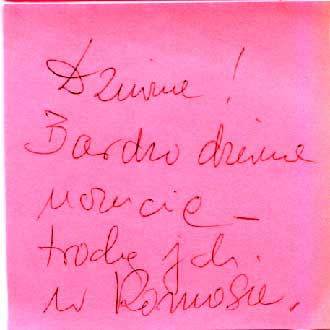 Dziwne!
Bardzo dziwne
uczucie –
trochę jak
w Kosmosie.